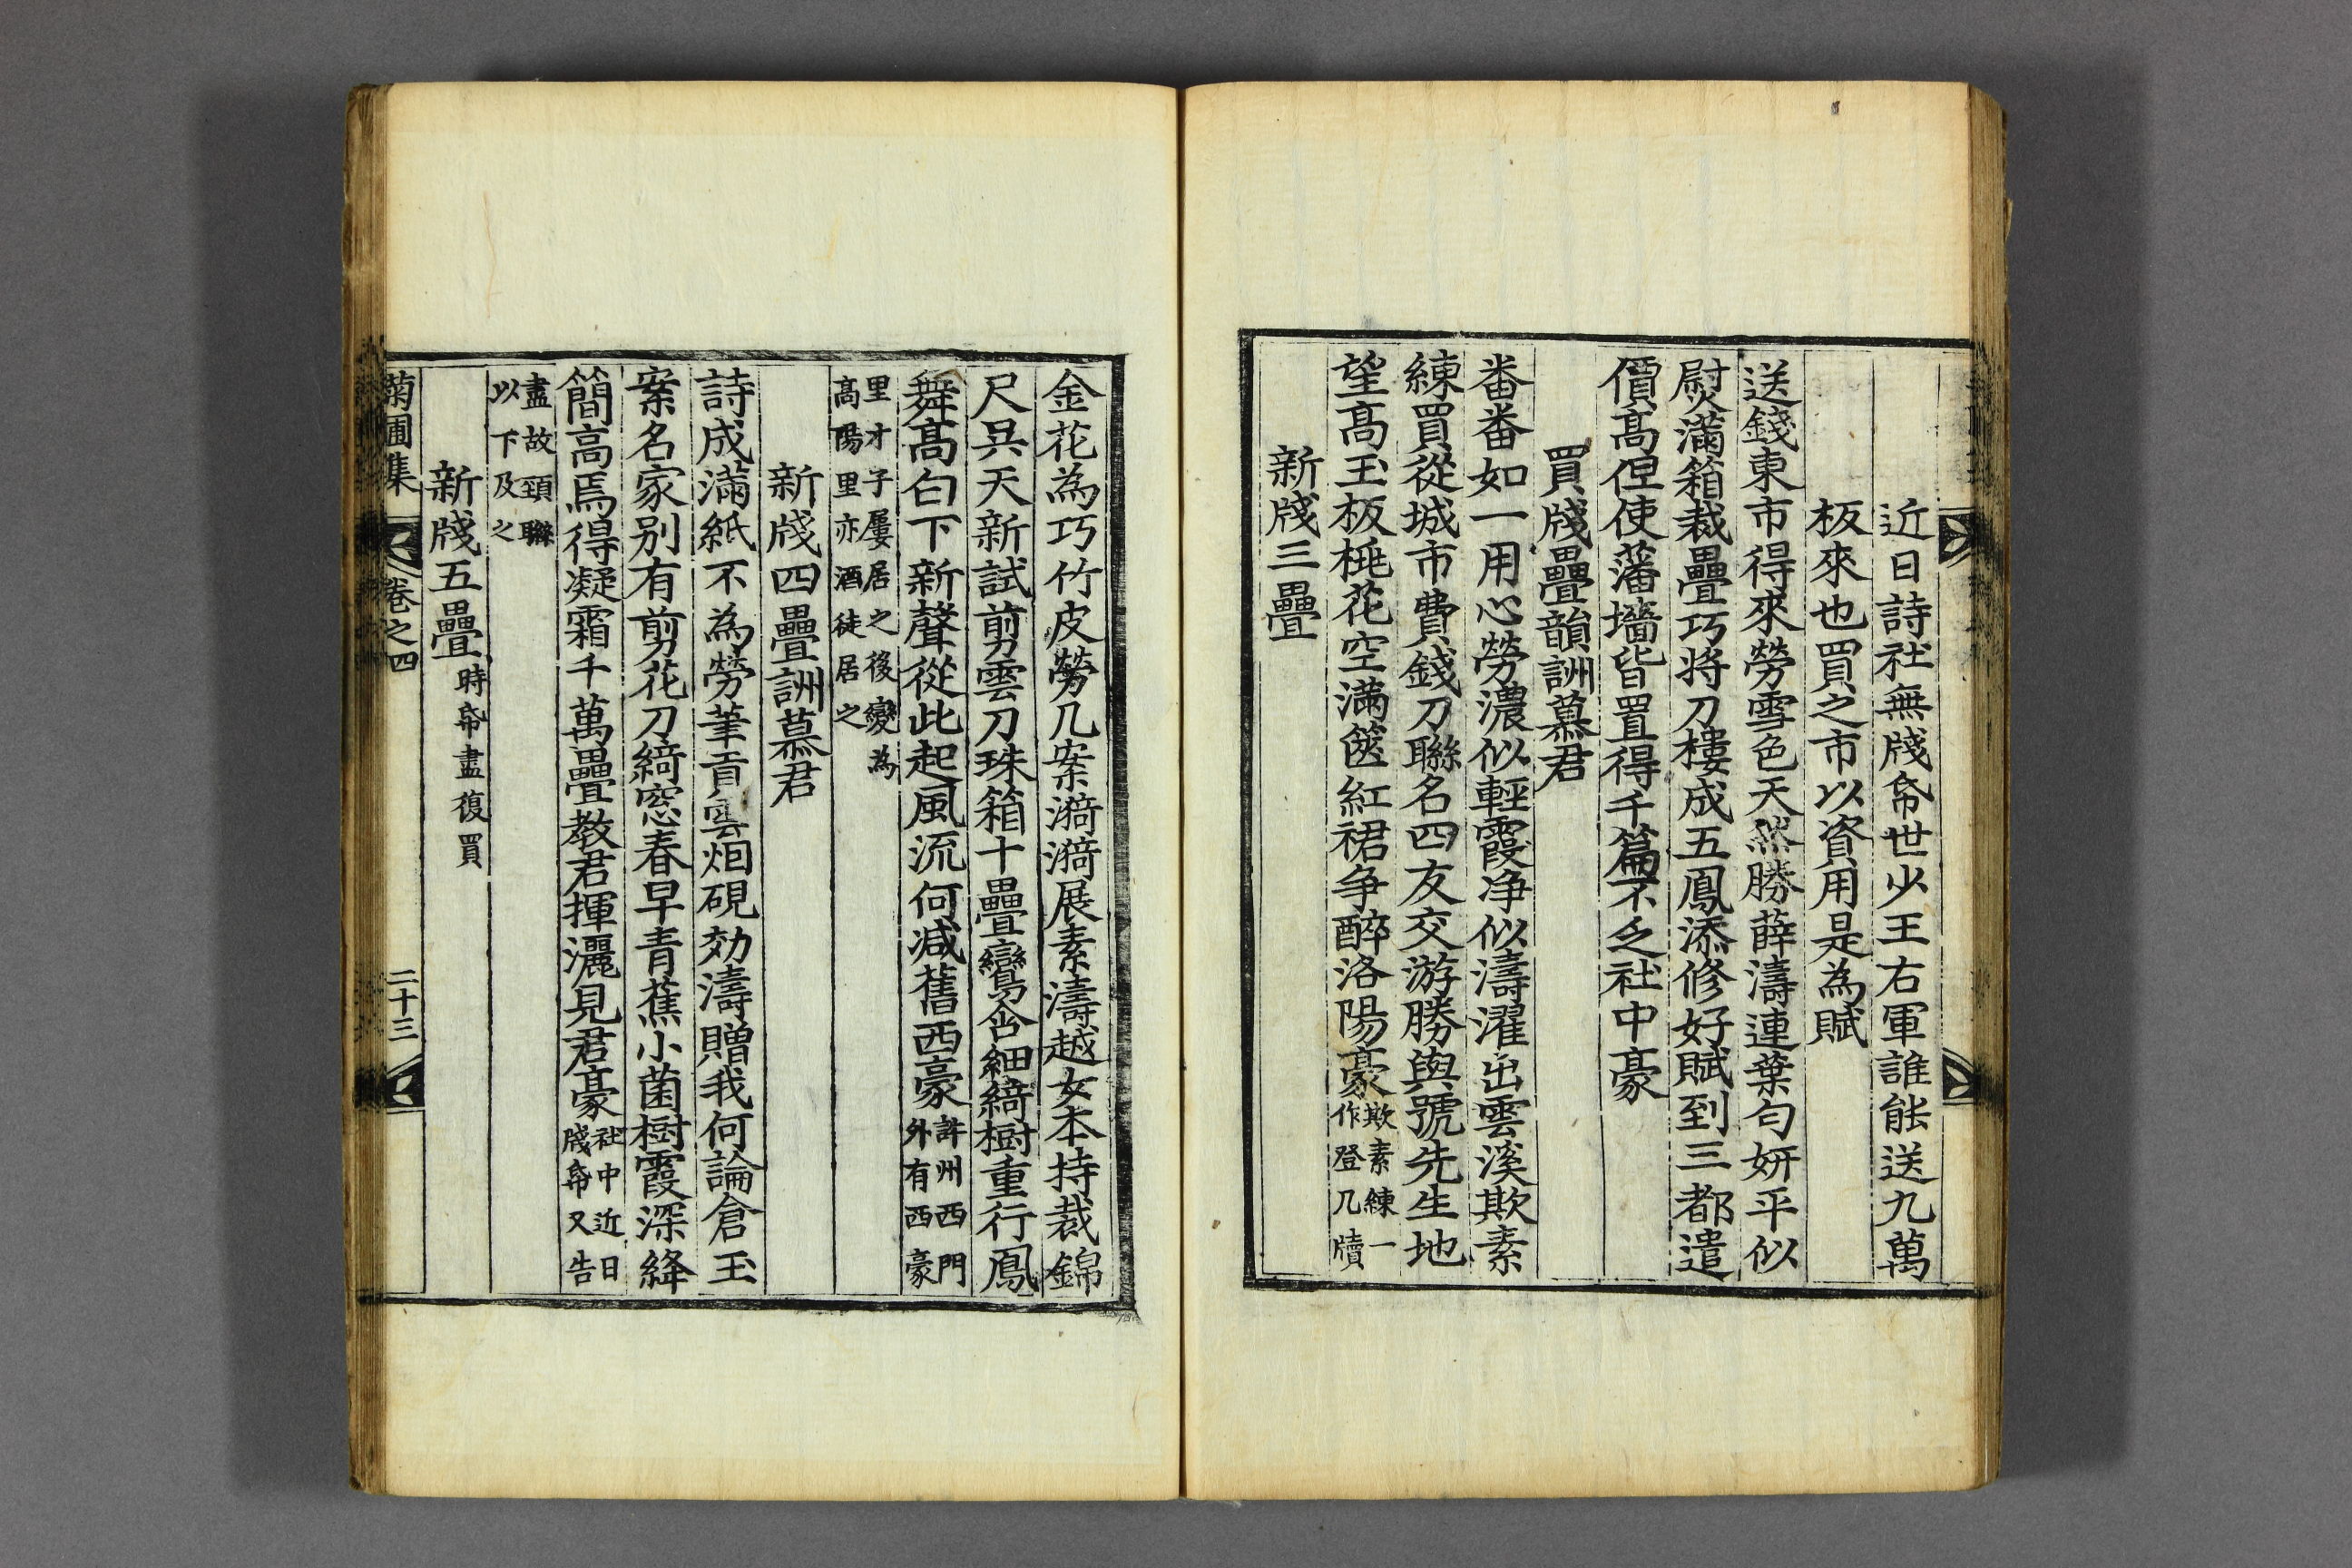 近日詩社無牋帋世少王右軍誰能送九萬
板來也買之市以資用是為賦
送錢東市得來勞雪色天然勝薛濤連葉勻妍平似
熨滿箱裁疊巧將刀樓成五鳳添修好賦到三都遣
價髙但使藩墻皆置得千篇不乏社中豪
買牋疊韻詶慕君
番番如一用心勞濃似輕霞净似濤濯出雲溪欺素
練買從城市費錢刀聯名四友交游勝與號先生地
望髙玉板桃花空滿篋紅裙争醉洛陽豪欺素練一
作登几牘
新牋三疊
金花為巧竹皮勞几案漪漪展素濤越女本持裁錦
尺呉天新試剪雲刀珠箱十疊鸞含細綺樹重行鳳
舞髙白下新聲從此起風流何减舊西豪許州西門
外有西豪
里才子屢居之後變為
髙陽里亦酒徒居之
新牋四疊詶慕君
詩成滿紙不為勞筆貢雲烟硯効濤贈我何論倉玉
案名家别有剪花刀綺窓春早青蕉小菌樹霞深絳
簡高焉得凝霜千萬疊教君揮灑見君豪社中近日
牋帋又告
盡故頚聯
以下及之
新牋五疊時帋盡復買
菊圃集 卷之四 二十三